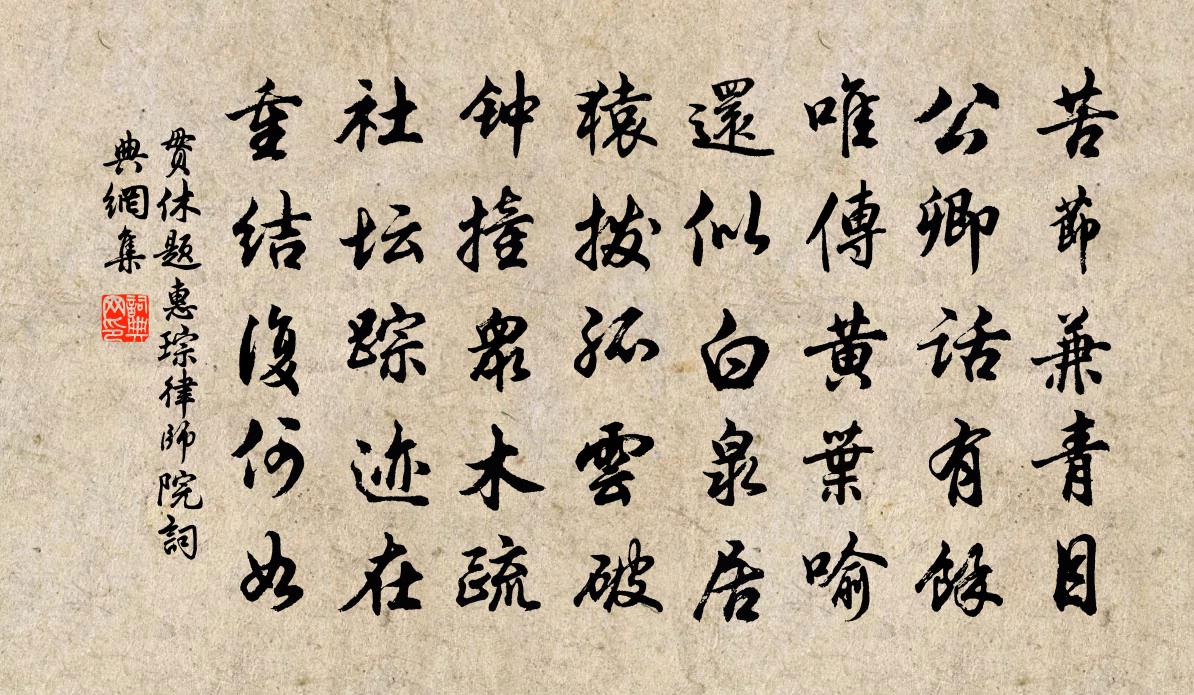 苦節兼青目
公卿話有餘
唯傳黃葉喻
還似白泉居
猿拨孤雲破
钟撞眾木疏
社坛踪迹在
重结復何如
贯休题惠琮律師院詞
典網集
詞典网印